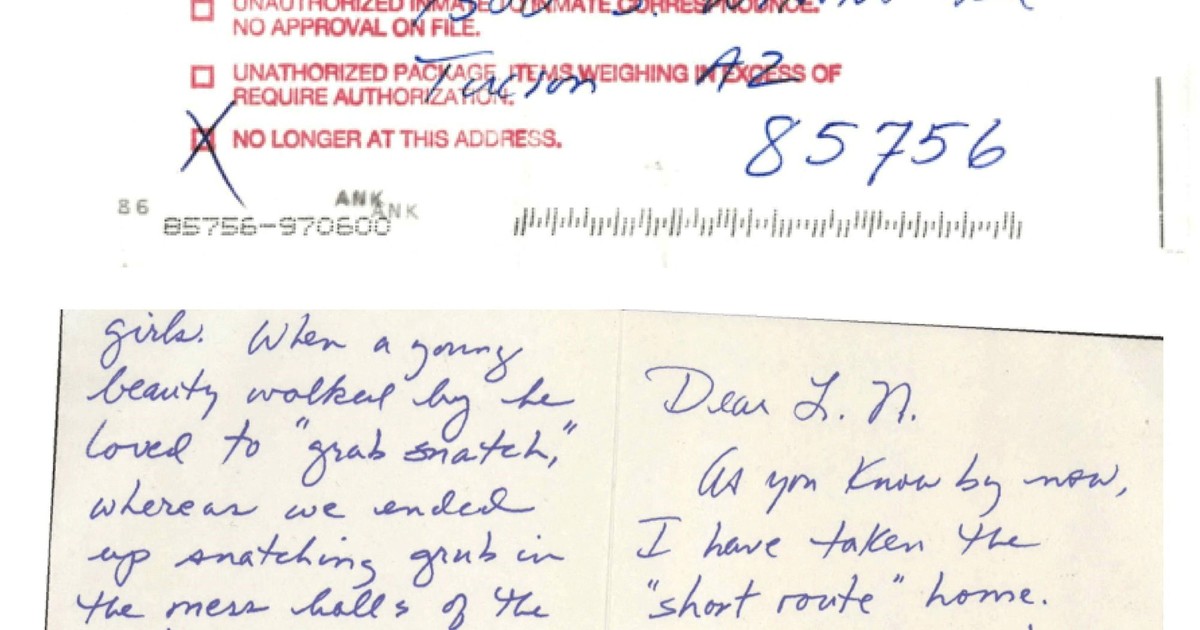 UNAUTHORIZED INMATE TO INMATE CORRESPONDNCE.
NO APPROVAL ON FILE.
UNATHORIZED PACKAGE, ITEMS WEIGHING IN EXCESS OF
REQUIRE AUTHORIZATION.
Tucson AZ
NO LONGER AT THIS ADDRESS.
85756
86
ANK
ANK
85756-970600
girls. When a young
beauty walked by he
loved to "grab snatch,"
whereas we ended
up snatching grub in
the mess halls of the
Dear L. N.
As you know by now,
I have taken the
"short route" home.